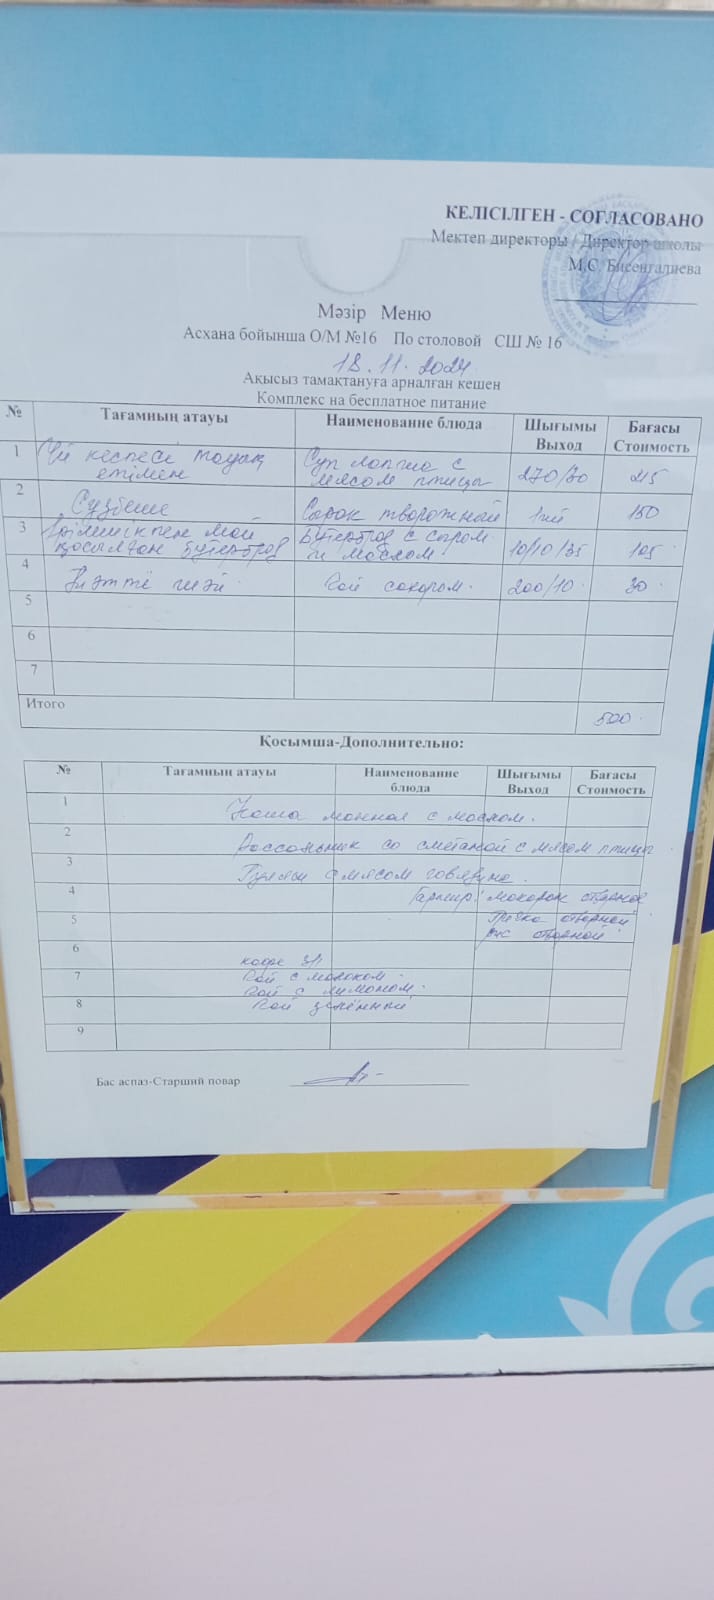 КЕЛІСІЛГЕН - СОГЛАСОВАНО
Мектеп директоры / Директор школы
М.С. Бисенгалиева
Мәзір Меню
Асхана бойынша О/М №16 По столовой СШ № 16
18.11.2024
Ақысыз тамақтануға арналған кешен
Комплекс на бесплатное питание
№ Тағамның атауы Наименование блюда Шығымы Выход Бағасы Стоимость
1 Үй кеспесі тауық етімен Суп лапша с мясом птицы 270/30 215
2 Сүзбеше Сорок творожный 1 150
3 Ірімшікпен май қосылған бутерброд Бутерброд с сыром и маслом 10/10/35 105
4 Тәтті шәй Чай сахаром 200/10 30
5
6
7
Итого 500
Қосымша-Дополнительно:
№ Тағамның атауы Наименование блюда Шығымы Выход Бағасы Стоимость
1 Каша манная с маслом.
2 Рассольник со сметаной с мясом птицы
3 Гуляш с мясом говядины.
4 Гарнир: макароны отварное
5 Гречка отварной
рис отварной
6 кофе 3/1
7 Чай с молоком.
Чай с лимоном.
8 Чай зелёный
9
Бас аспаз-Старший повар